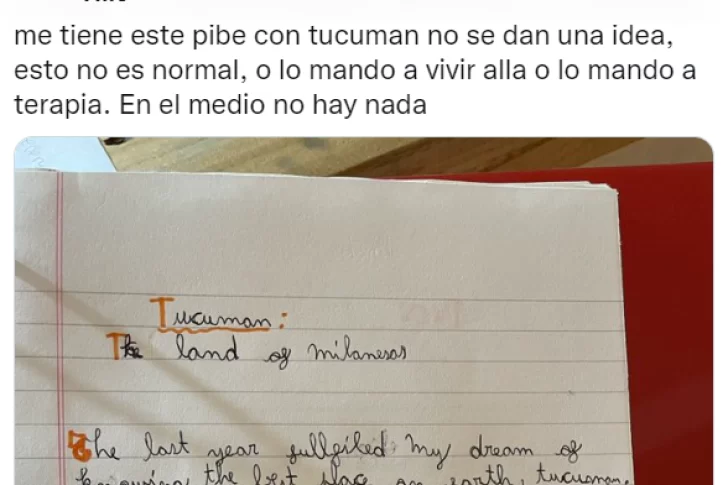 me tiene este pibe con tucuman no se dan una idea,
esto no es normal, o lo mando a vivir alla o lo mando a
terapia. En el medio no hay nada
Tucuman:
The land of milanesas
The last year fullfiled my dream of
the best on earth, tucuman,